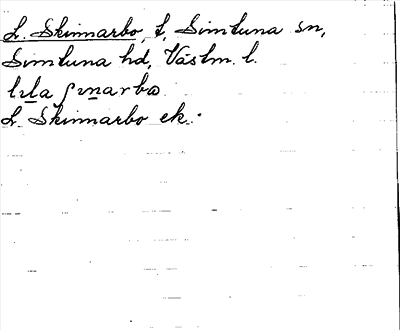 L. Skinnarbo, t, Simtuna sn,
Simtuna hd, Västm. l.
lɩla ʃɩnarbω
L. Skinnarbo ek.